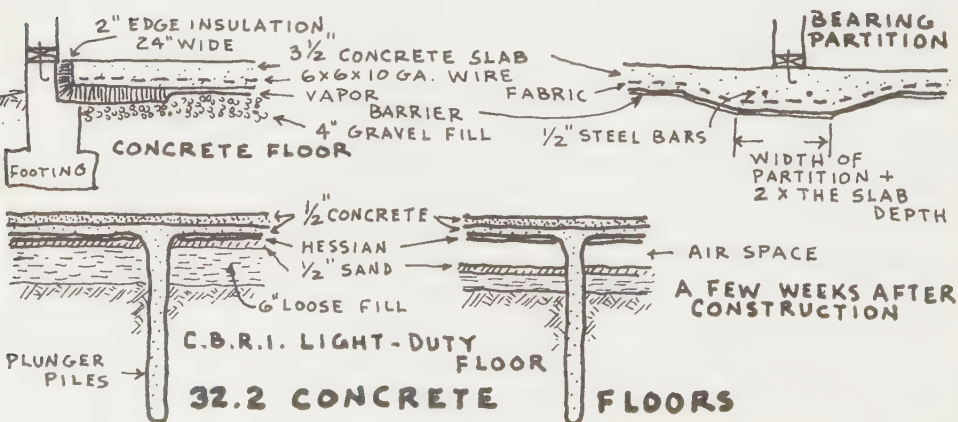 2" EDGE INSULATION
24" WIDE
3 1/2" CONCRETE SLAB
6x6x10 GA. WIRE
FABRIC
VAPOR
BARRIER
4" GRAVEL FILL
CONCRETE FLOOR
FOOTING
BEARING
PARTITION
1/2" STEEL BARS
WIDTH OF
PARTITION +
2 X THE SLAB
DEPTH
1/2" CONCRETE
HESSIAN
1/2" SAND
6" LOOSE FILL
AIR SPACE
A FEW WEEKS AFTER
CONSTRUCTION
C.B.R.I. LIGHT-DUTY
FLOOR
PLUNGER
PILES
32.2 CONCRETE FLOORS